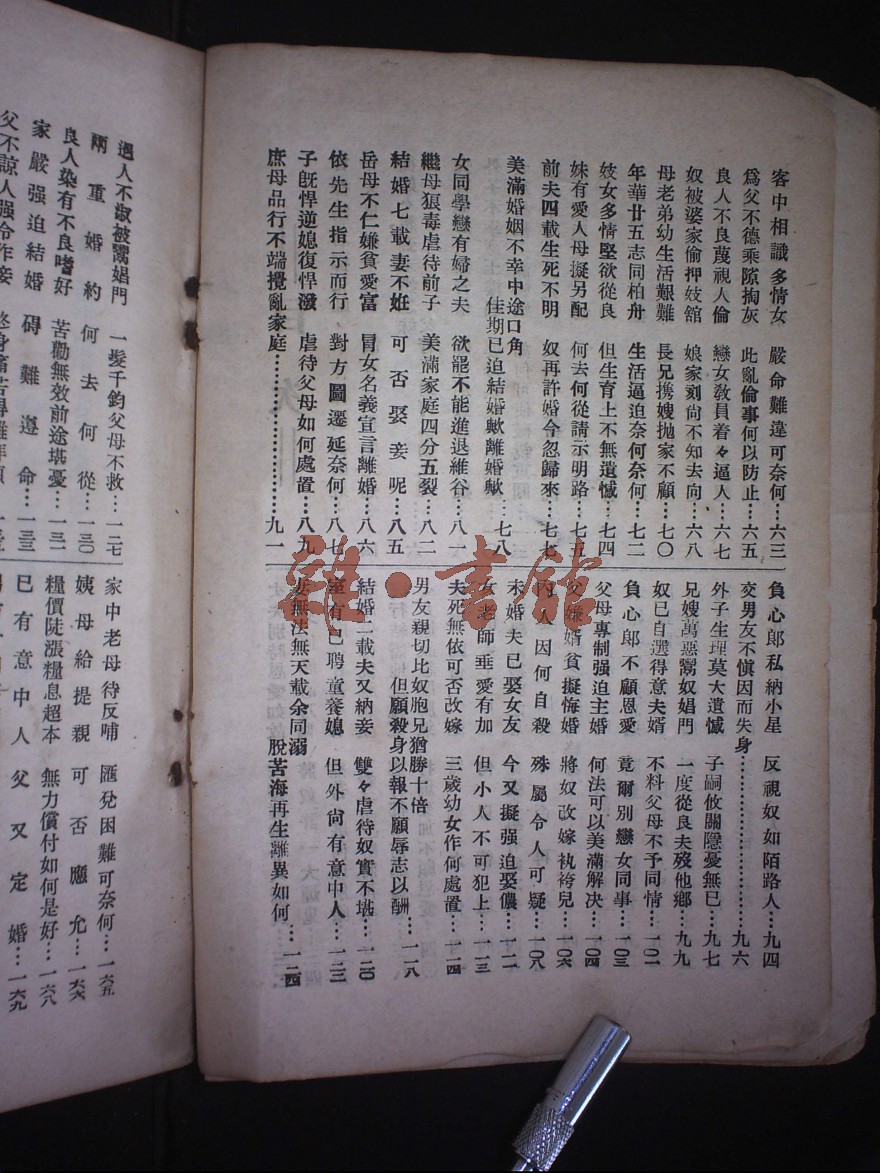 客中相識多情女 嚴命難違可奈何…六三
爲父不德乘隙掏灰 此亂倫事何以防止…六五
良人不良蔑視人倫 戀女敎員着々逼人…六七
奴被婆家偷押妓舘 娘家刻尙不知去向…六八
母老弟幼生活艱難 長兄携嫂抛家不顧…七〇
年華廿五志同柏舟 生活逼迫奈何奈何…七二
妓女多情堅欲從良 但生育上不無遺憾…七四
妹有愛人母擬另配 何去何從請示明路…七五
前夫四載生死不明 奴再許婚今忽歸來…七七
美滿婚姻不幸中途口角
佳期已迫結婚歟離婚歟…七八
女同學戀有婦之夫 欲罷不能進退維谷…八一
繼母狠毒虐待前子 美滿家庭四分五裂…八二
結婚七載妻不姙 可否娶妾呢…八五
岳母不仁嫌貧愛富 冒女名義宣言離婚…八六
依先生指示而行 對方圖遷延奈何…八七
子旣悍逆媳復悍潑 虐待父母如何處置…八九
庶母品行不端攪亂家庭……………………九一
負心郎私納小星 反視奴如陌路人…九四
交男友不愼因而失身……………………九六
外子生理莫大遺憾 子嗣攸關隱憂無已…九七
兄嫂萬惡鬻奴娼門 一度從良夫歿他鄉…九九
奴已自選得意夫婿 不料父母不予同情…一〇二
負心郎不顧恩愛 竟爾別戀女同事…一〇三
父母專制强迫主婚 何法可以美滿解決…一〇四
父嫌婿貧擬悔婚 將奴改嫁執袴兒…一〇六
內人因何自殺 殊屬令人可疑…一〇八
未婚夫已娶女友 今又擬强迫娶儂…一一二
女老師垂愛有加 但小人不可犯上…一一三
夫死無依可否改嫁 三歲幼女作何處置…一一四
男友親切比奴胞兄猶勝十倍
但願殺身以報不願辱志以酬…一一八
結婚二載夫又納妾 雙々虐待奴實不堪…一二〇
室有已聘童養媳 但外尙有意中人…一二三
妻無法無天載余同溺
脫苦海再生離異如何…一二四
遇人不淑被鬻娼門 一髮千鈞父母不救…一二七
兩重婚約 何去何從…一三〇
良人染有不良嗜好 苦勸無效前途堪憂…一三一
家嚴强迫結婚 碍難遵命…一三三
父不諒人强令作妾
家中老母待反哺 匯兌困難可奈何…一六五
姨母給提親 可否應允…一六六
糧價陡漲糧息超本 無力償付如何是好…一六八
已有意中人 父又定婚…一六九